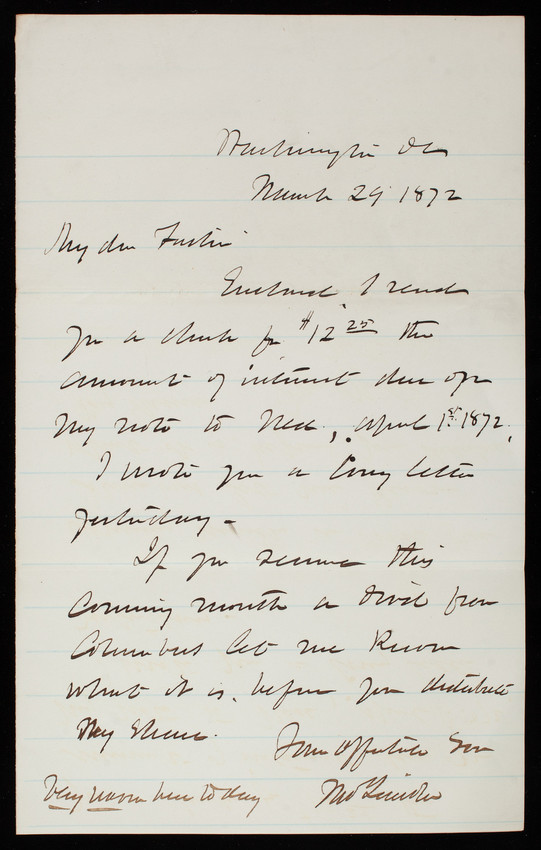 Washington DC
March 29 1872
My dear Father
Enclosed I send
you a check for $12 25 the
amount of interest due upon
my note to Ned, April 1st 1872,
I wrote you a long letter
yesterday -
If you receive this
coming month a divid from
Columbus let me know
what it is, before you distribute
my share.
Your affectate Son
Very warm here to day